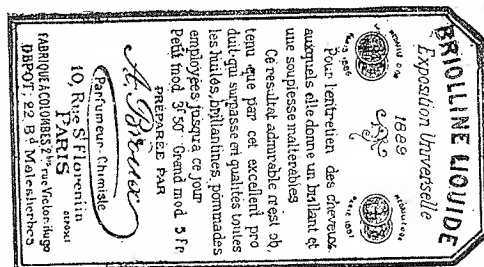 BRIOLLINE LIQUIDE
Exposition Universelle
1889
MEDAILLE D'OR
PARIS 1886
MEDAILLE D'OR
PARIS 1887
Pour l'entretien des cheveux,
auxquels elle donne un brillant et
une souplesse inaltérables
Ce résultat admirable n'est ob,
tenu que par cet excellent pro
duit qui surpasse en qualités toutes
les huiles, brillantines, pommades
employées jusqu'à ce jour
Petit mod. 3f 50 Grand mod. 5 Fr
PRÉPARÉE PAR
Parfumeur-Chimiste
10, Rue St Florentin
PARIS
FABRIQUE A COLOMBES 2bis, rue Victor-Hugo
DÉPOT, 22, Bd Malesherbes